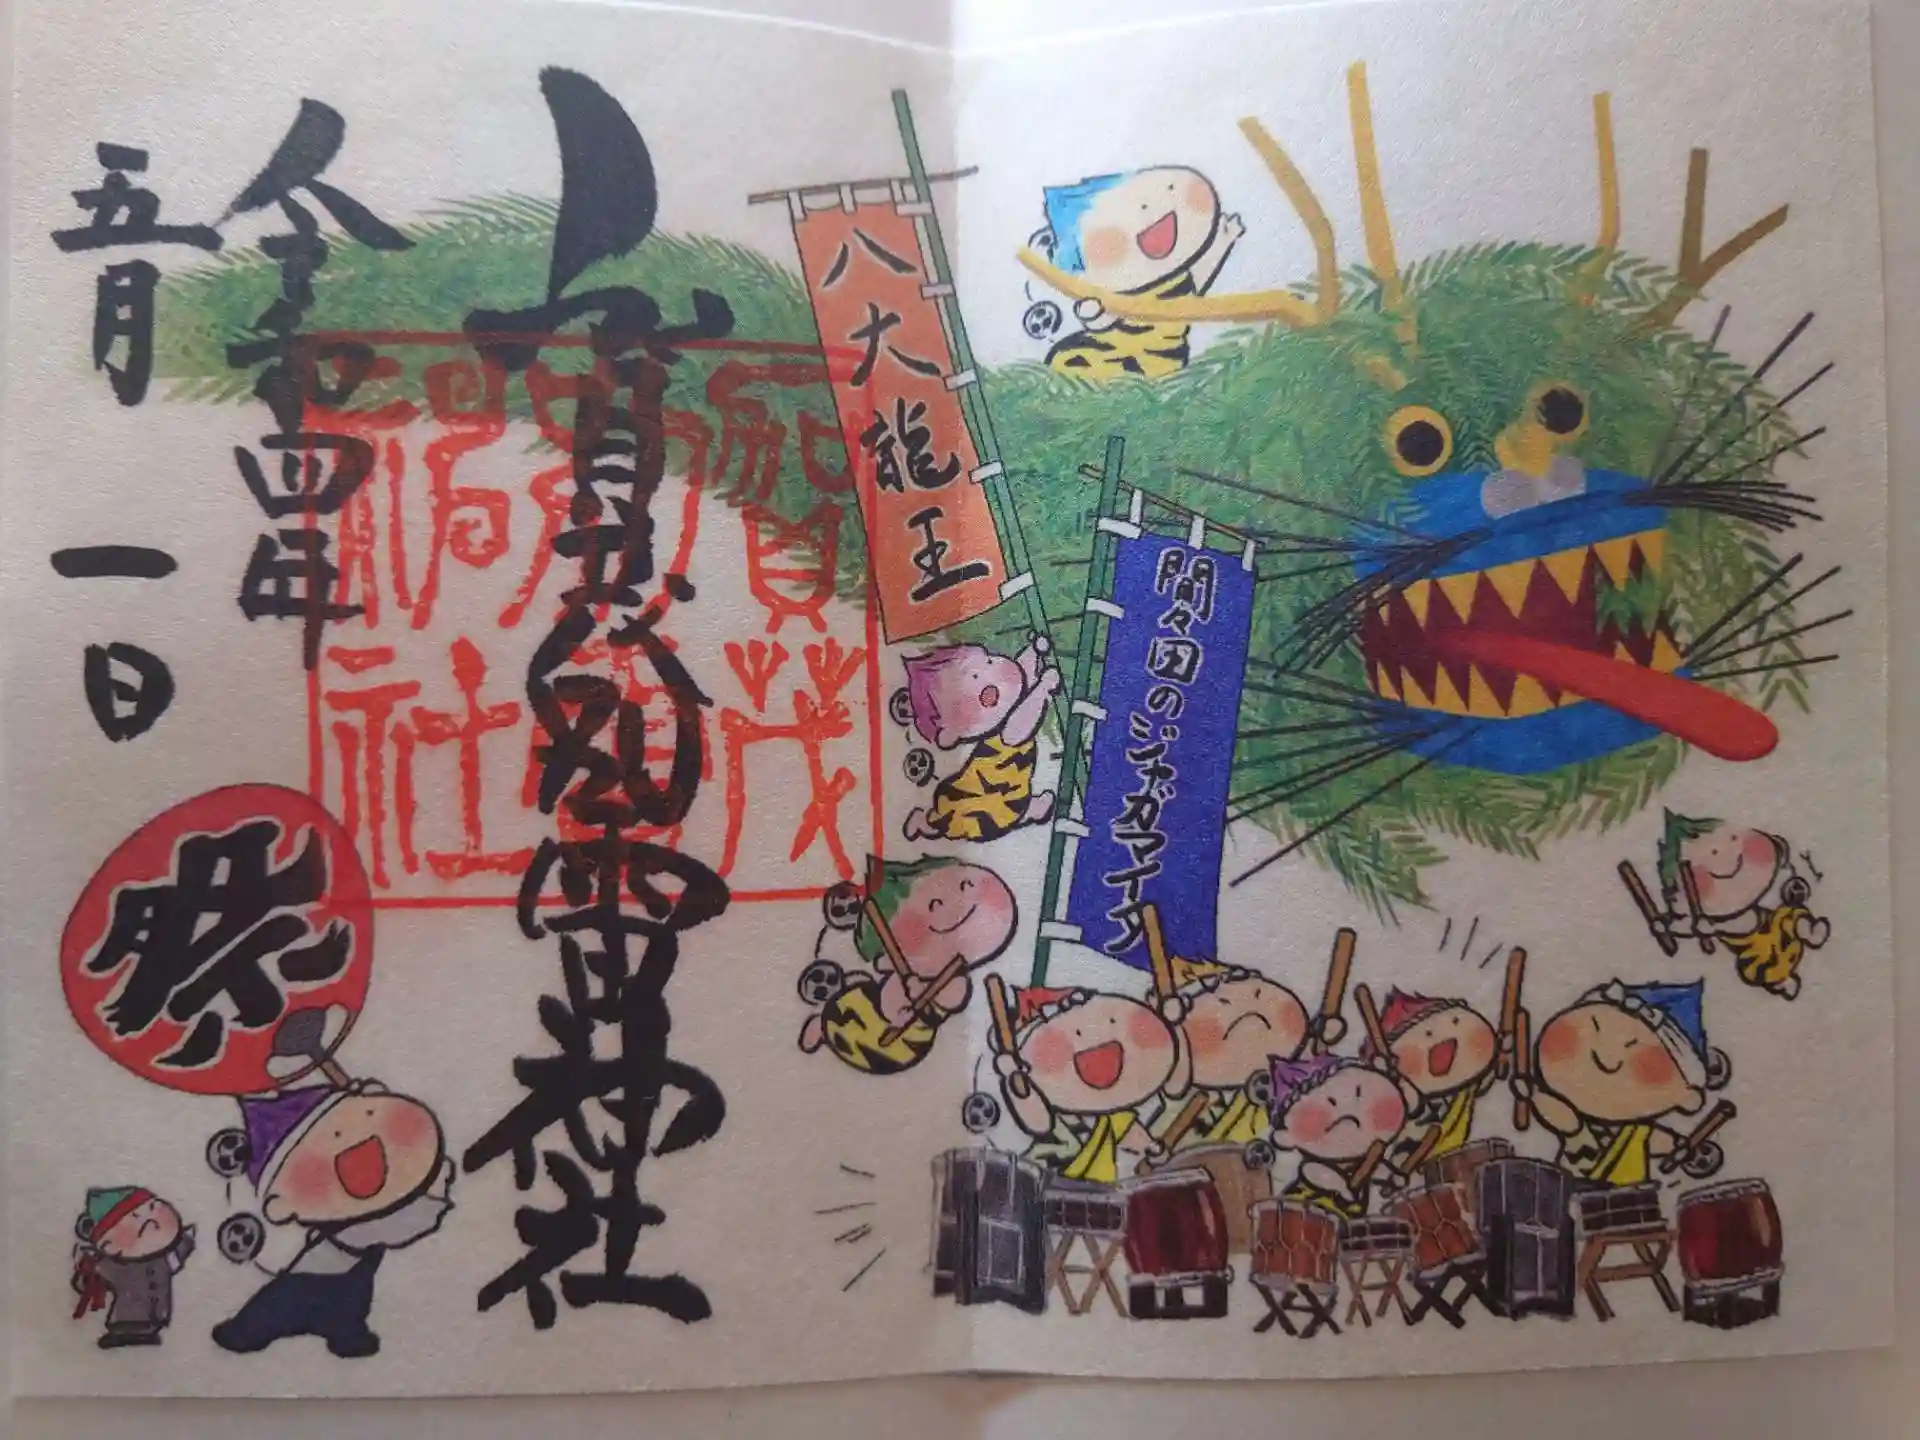 間々田のジャガマイタ
八大龍王
賀茂別雷神社
賀茂
別雷
神社
令和四年
五月一日
祭